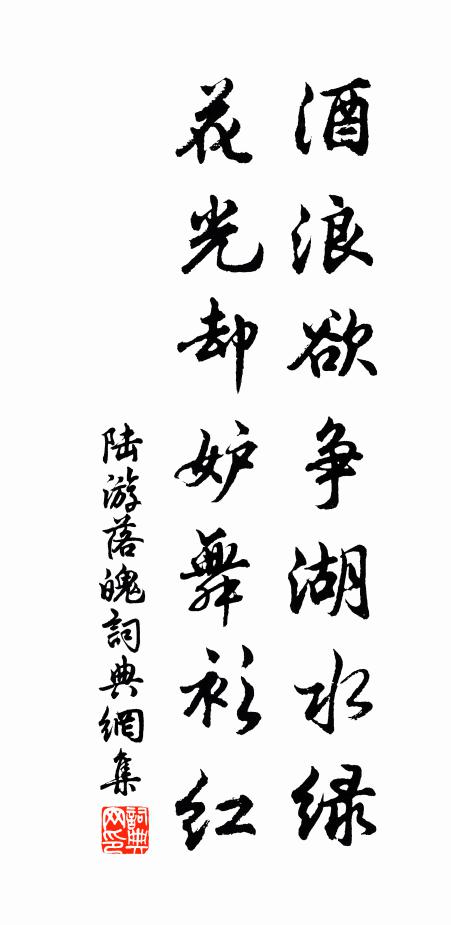 酒浪欲争湖水绿
花光却妒舞衫红
陆游落魄詞典網集
詞典
网印